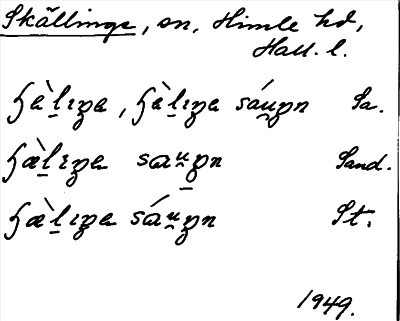 Skällinge, sn, Himle hd,
Hall. l.
ɧæ̀lıŋa, ɧæ̀lıŋa sáuŋn Sa.
ɧæ̀lıŋa sauŋn Sand.
ɧæ̀lıŋa sáuŋn St.
1949.